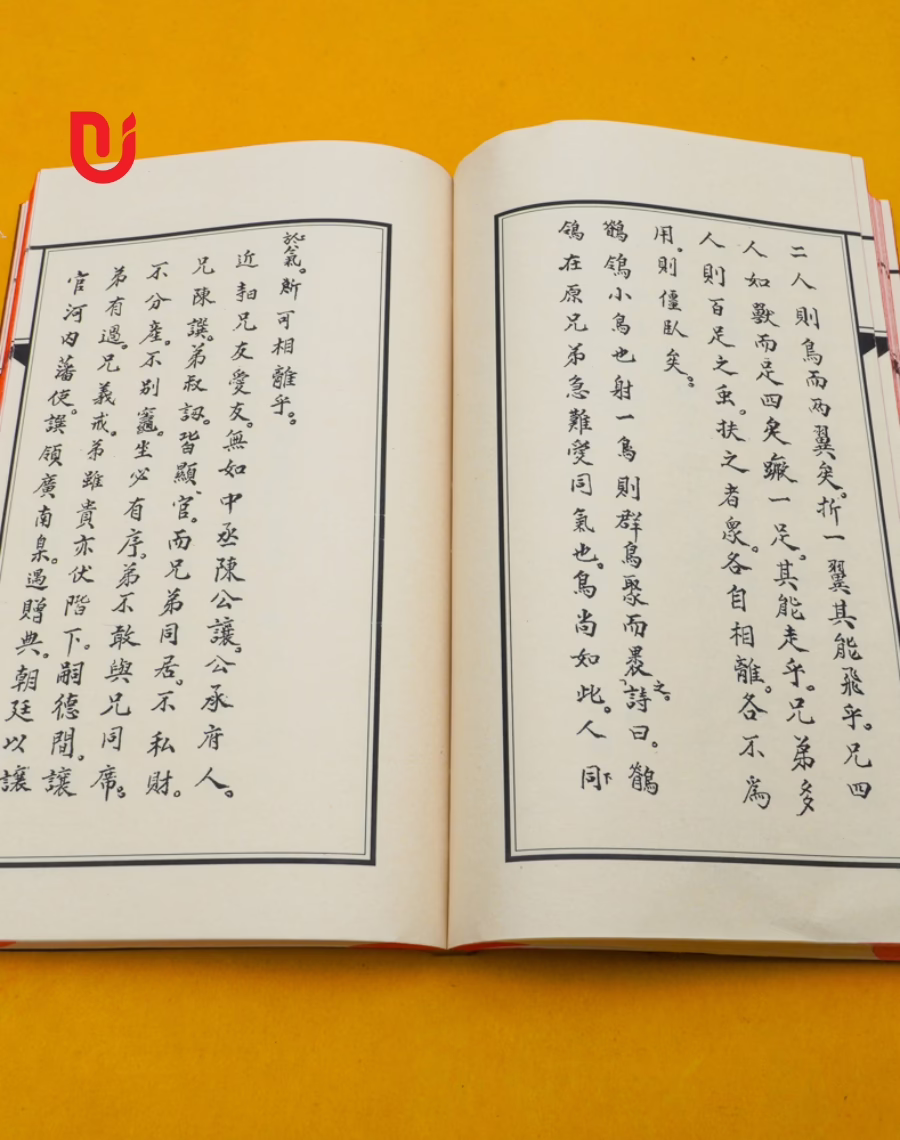 二人則鳥而兩翼矣。折一翼其能飛乎。兄四
人如獸而足四矣蹶一足。其能走乎。兄弟多
人則百足之虫。扶之者衆。各自相離。各不爲
用。則僵臥矣。
鶺鴒小鳥也射一鳥則群鳥聚而之。詩曰。鶺
鴒在原兄弟急難愛同氣也。鳥尚如此。人同
於氣。斯可相離乎。
近兄友愛友。無如中丞陳公讓。公承府人。
兄陳譔。弟叔訒。皆顯官。而兄弟同居。不私財。
不分產。不別竈。坐必有序。弟不敢與兄同席。
弟有過。兄義戒。弟雖貴亦伏階下。嗣德間。讓
官河内藩使。譔領廣南臬。遇贈典。朝廷以讓